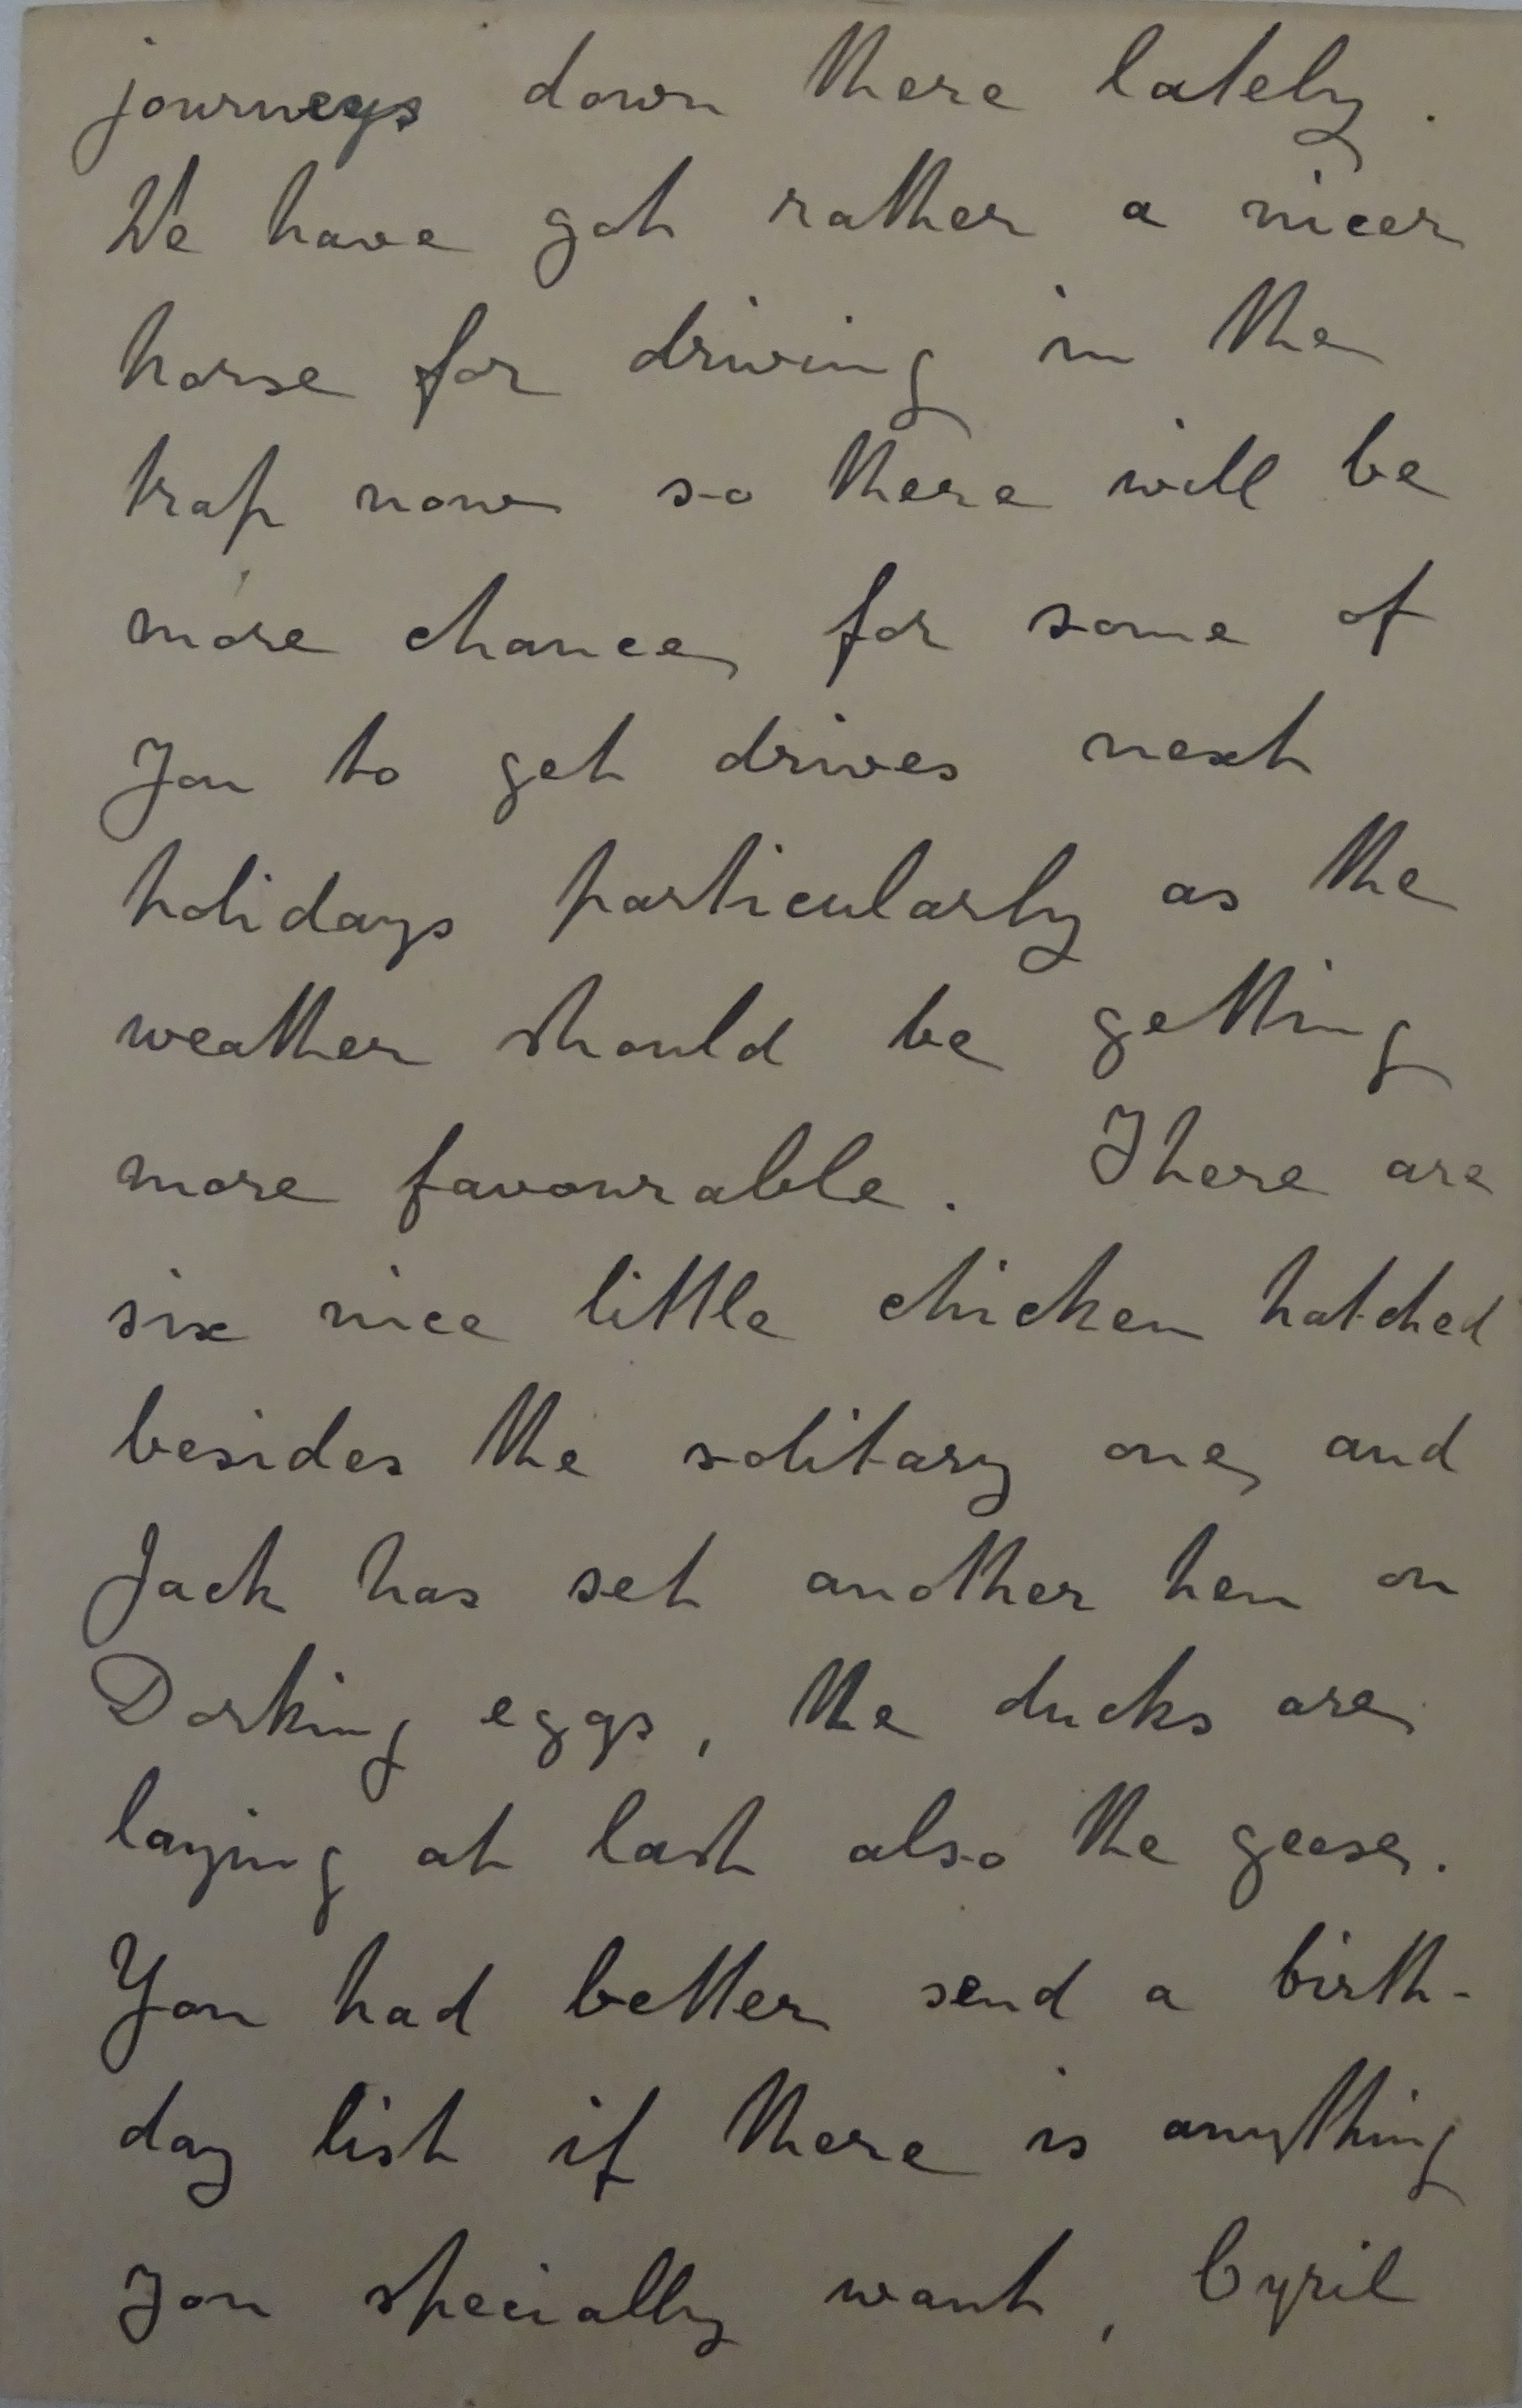 journeys down there lately.
We have got rather a nicer
horse for driving in the
trap now so there will be
more chance for some of
you to get drives next
holidays particularly as the
weather should be getting
more favourable. There are
six nice little chicken hatched
besides the solitary one, and
Jack has set another hen on
Dorking eggs, the ducks are
laying at last also the geese.
You had better send a birth-
day list if there is anything
you specially want, Cyril